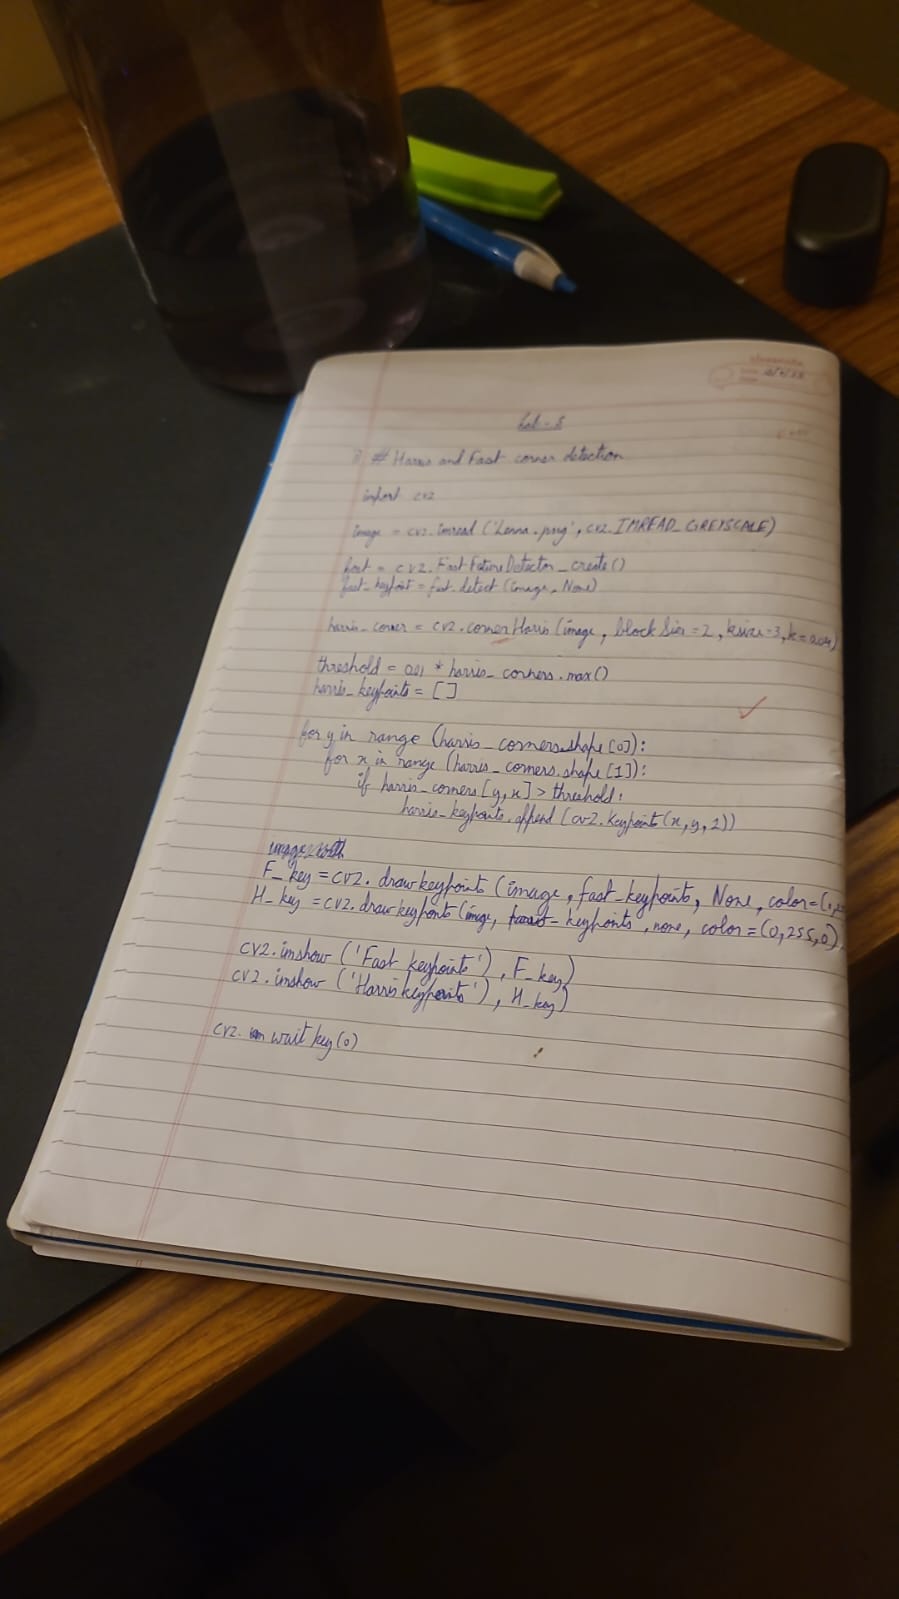 Lab - 5
# Harris and Fast corner detection
import cv2
image = cv2.imread ('Lenna.png', cv2.IMREAD_GREYSCALE)
fast = cv2.FastFutureDetector_create()
fast_keypoint = fast.detect (image, None)
harris_corner = cv2.cornerHarris (image, blockSize=2, ksize=3, k=0.04)
threshold = 0.01 * harris_corners.max()
harris_keypoints = []
for y in range (harris_corners.shape[0]):
for x in range (harris_corners.shape[1]):
if harris_corners[y,x] > threshold:
harris_keypoints.append (cv2.Keypoint(x,y,2))
F_key = cv2.drawkeypoints (image, fast_keypoints, None, color=(
H_key = cv2.drawkeypoints (image, keypoints, none, color=(0,255,0)
cv2.imshow ('Fast keypoints'), F_key)
cv2.imshow ('Harris keypoints'), H_key)
cv2. wait key(0)